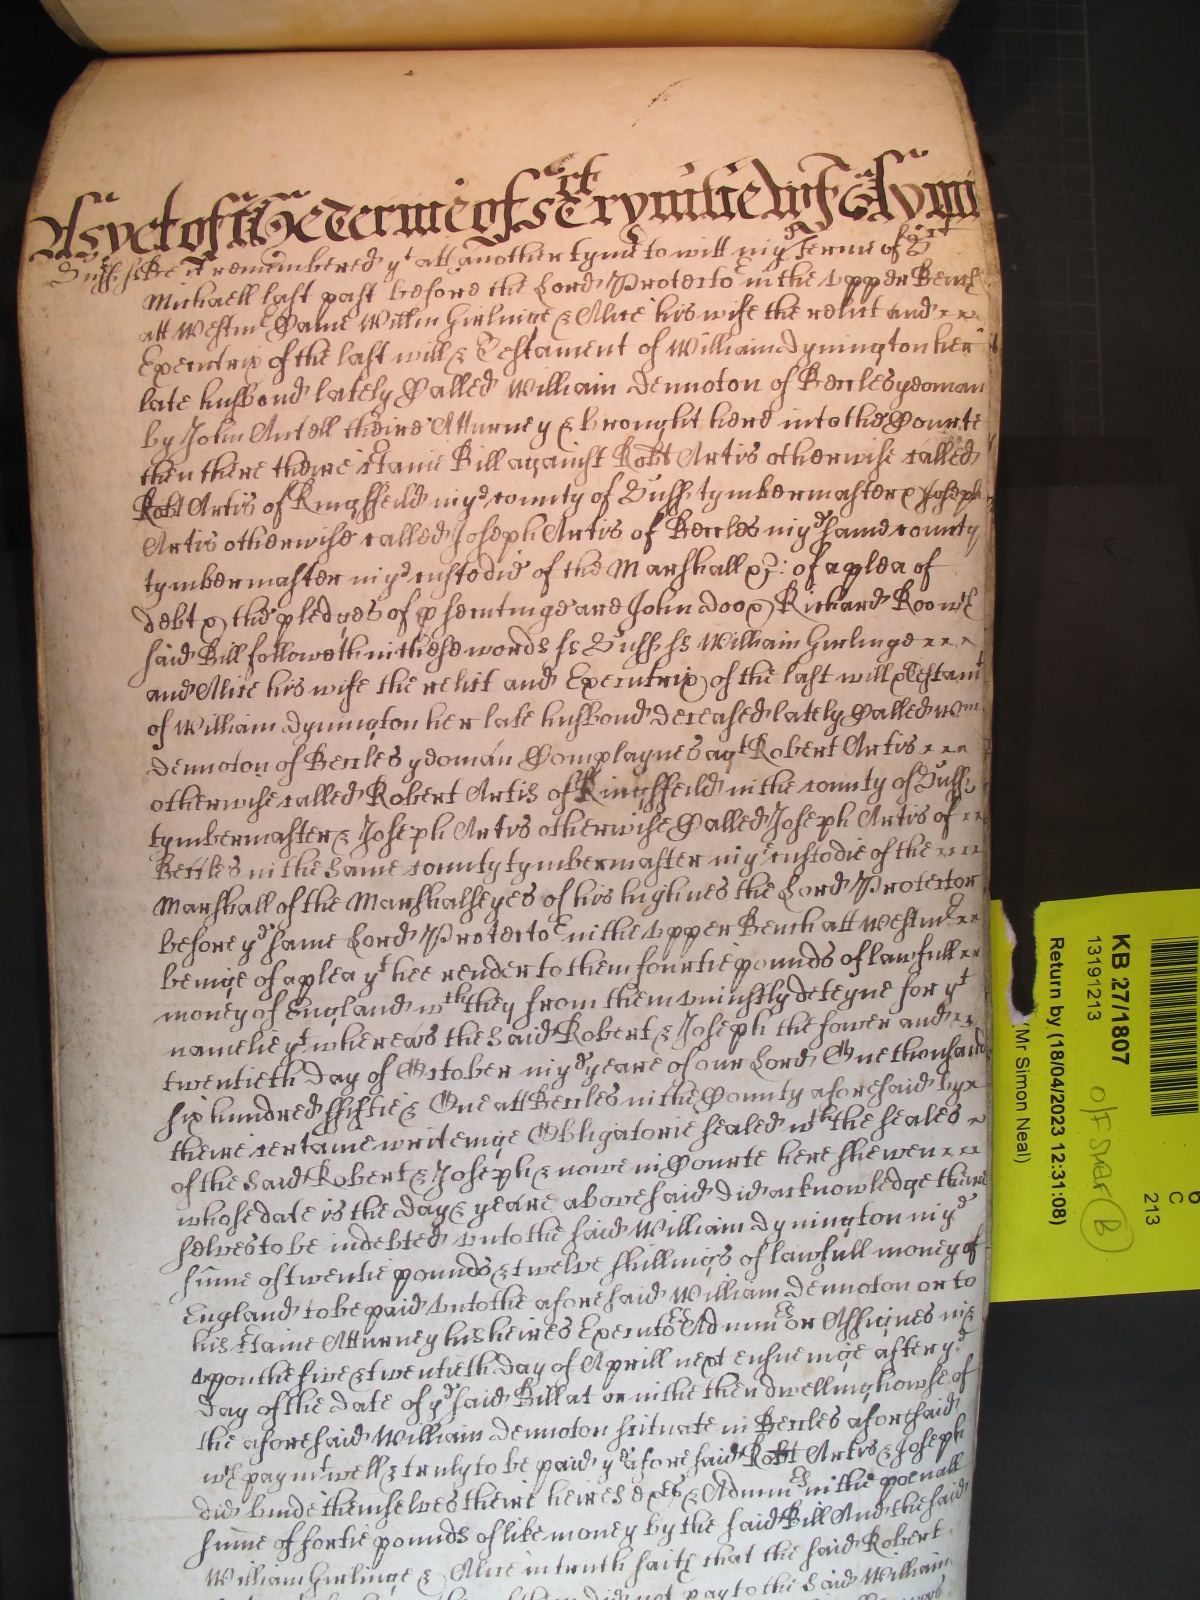 As yet of the Terme of St Trynitie Witt: Tyme
Suff. ss Be it remembered yt att another tyme to witt in ye Terme of St
Michaell last past before the Lord Protector in the Upper Bench
att Westmr Came Willm Girlinge & Alice his wife the relict and
Executrix of the last will & Testament of William Dynington her
late husbond lately Called William Dennoton of Beccles yeoman
by John Antell theire Atturney & brought here into the Courte
then there theire Ctaine Bill against Robt Artis otherwise called
Robt Artis of Ringsfeild in ye county of Suff tymbermaster & Joseph
Artis otherwise called Joseph Artis of Beccles in ye same county
tymbermaster in ye custodie of the Marshall &c: of a plea of
debt & the pledges of psecutinge are John Doo & Richard Roo wch
said Bill followeth in these words ss Suff ss William Girlinge
and Alice his wife the relict and Executrix of the last will & Testamt
of William Dynington her late husbond deceased lately Called Wm
Dennoton of Beccles yeoman Complaynes agt Robert Artis
otherwise called Robert Artis of Ringsfeild in the county of Suff
tymbermaster & Joseph Artis otherwise Called Joseph Artis of
Beccles in the same county tymbermaster in ye custodie of the
Marshall of the Marshalseyes of his highnes the Lord Protector
before ye same Lord Protector in the Upper Bench att Westmr
beinge of a plea yt hee render to them fourtie pounds of lawfull
money of England wch they from them uniustly deteyne for yt
namelie yt whereas the said Robert & Joseph the fower and
twentieth day of October in ye yeare of our Lord One thousand
six hundred fiftie & One att Beccles in the County aforesaid by
theire certaine writeinge Obligatorie sealed wth the seales
of the said Robert & Joseph & nowe in Courte here shewen
whose date is the day & yeare abovesaid did acknowledge them
selves to be indebted unto the said William Dynington in ye
sume of twentie pounds & twelve shillings of lawfull money of
England to be paid unto the aforesaid William Dennoton or to
his Ctaine Atturney his heires Executors Adminrs or Assignes
upon the five & twentieth day of Aprill next ensueinge after ye
day of the date of ye said Bill at or in the then dwellinghowse of
the aforesaid William Dennoton scituate in Beccles aforesaid
wch paymt well & truly to be paid ye aforesaid Robt Artis & Joseph
did binde themselves theire heires & Adminrs in the poenall
sume of fortie pounds of like money by the said Bill And the said
William Girlinge & Alice in truth saith that the said Robert
did not pay to the said William
KB 27/1807
13191213
Return by (18/04/2023 12:31:08)
(Mr Simon Neal)
O/F
B
6
C
213